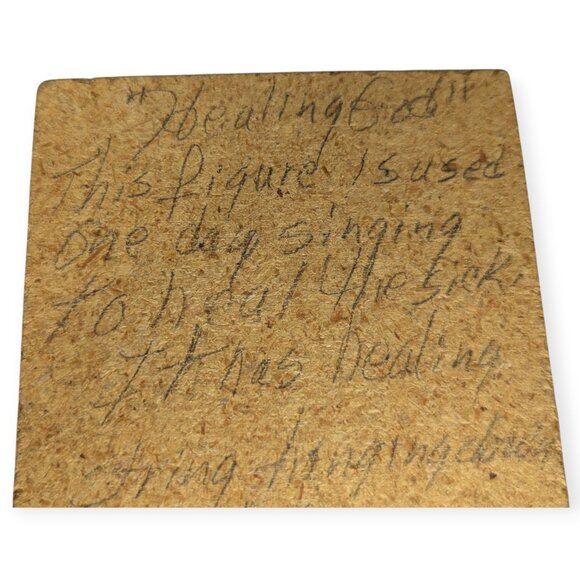 "Healing God"
This figure is used
one day singing
to heal the sick.
It has healing
string hanging down